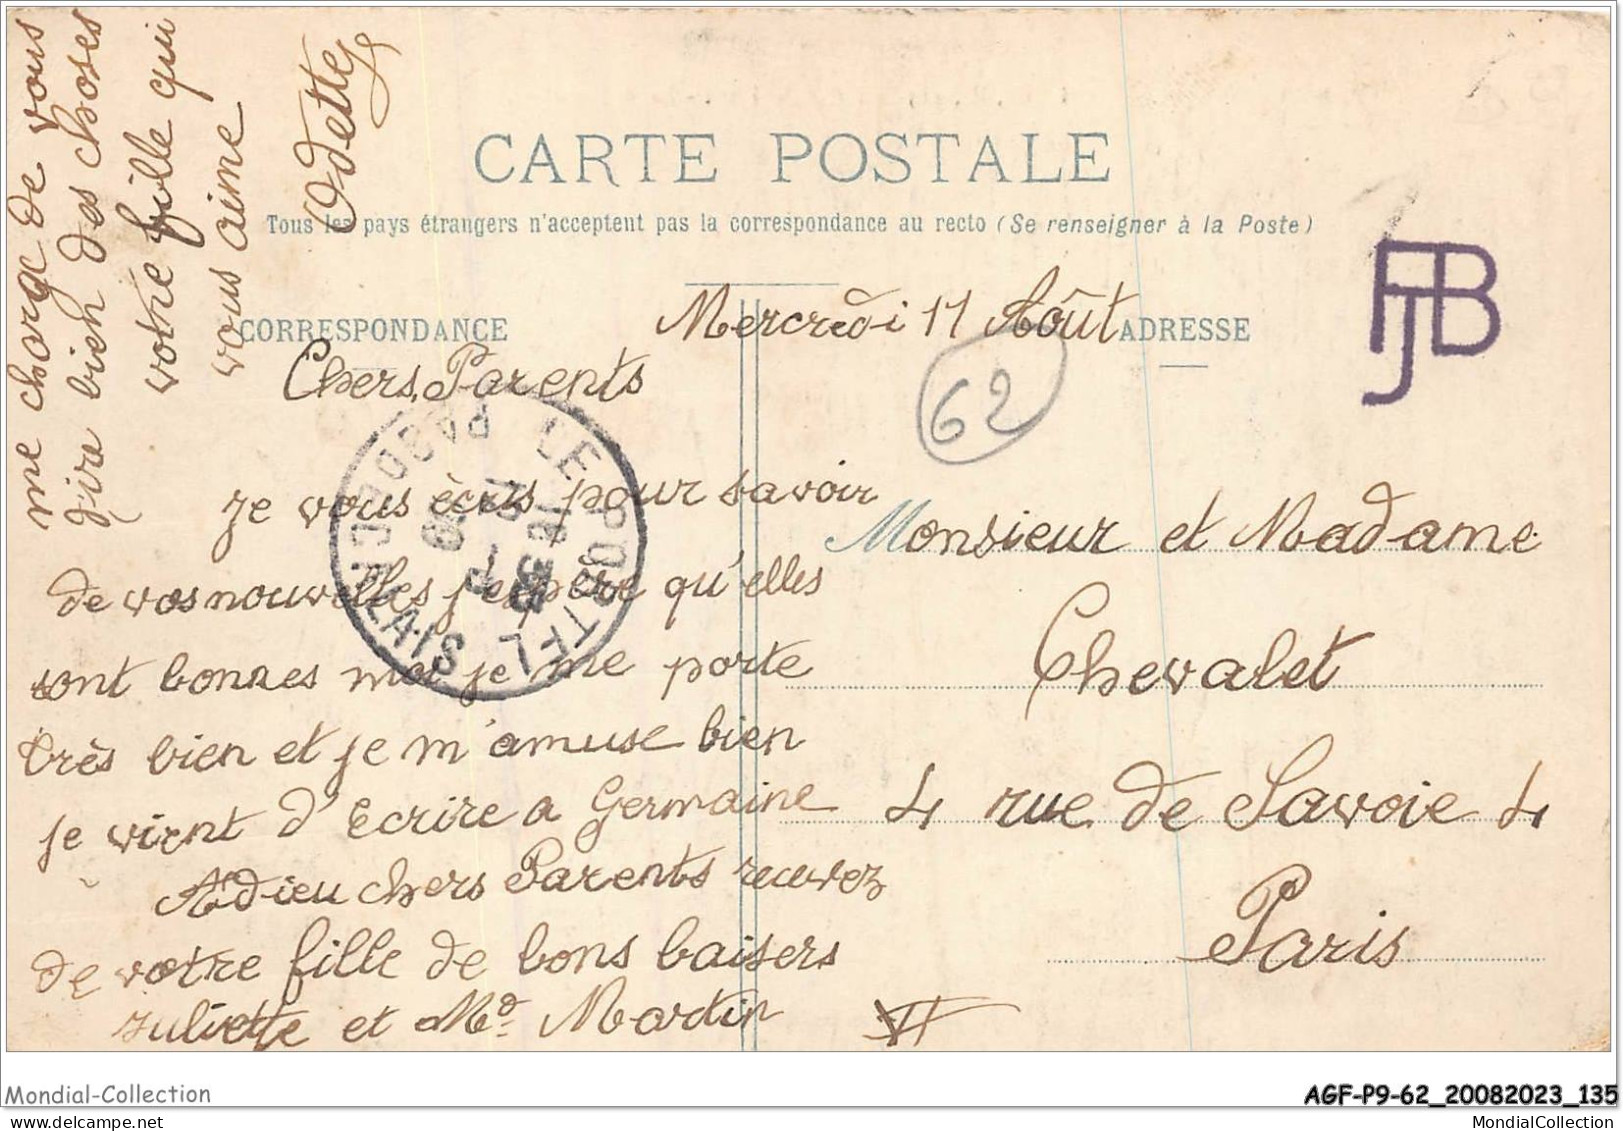 CARTE POSTALE
Tous les pays étrangers n'acceptent pas la correspondance au recto (Se renseigner à la Poste)
CORRESPONDANCE
ADRESSE
Mercredi 11 Août
62
FJB
Chers Parents
je vous écris pour savoir
de vos nouvelles j'espère qu'elles
sont bonnes moi je me porte
très bien et je m'amuse bien
je vient d'écrire a Germaine
Adieu chers Parents recevez
de votre fille de bons baisers
Juliette et Md. Martin
me charge de vous
dire bien des choses
votre fille qui
vous aime
Odette
LE PORTEL
PAS DE CALAIS
Monsieur et Madame
Chevalet
4 rue de Savoie 4
Paris
VI
Mondial-Collection
AGF-P9-62_20082023_135
MondialCollection
MondialCollection